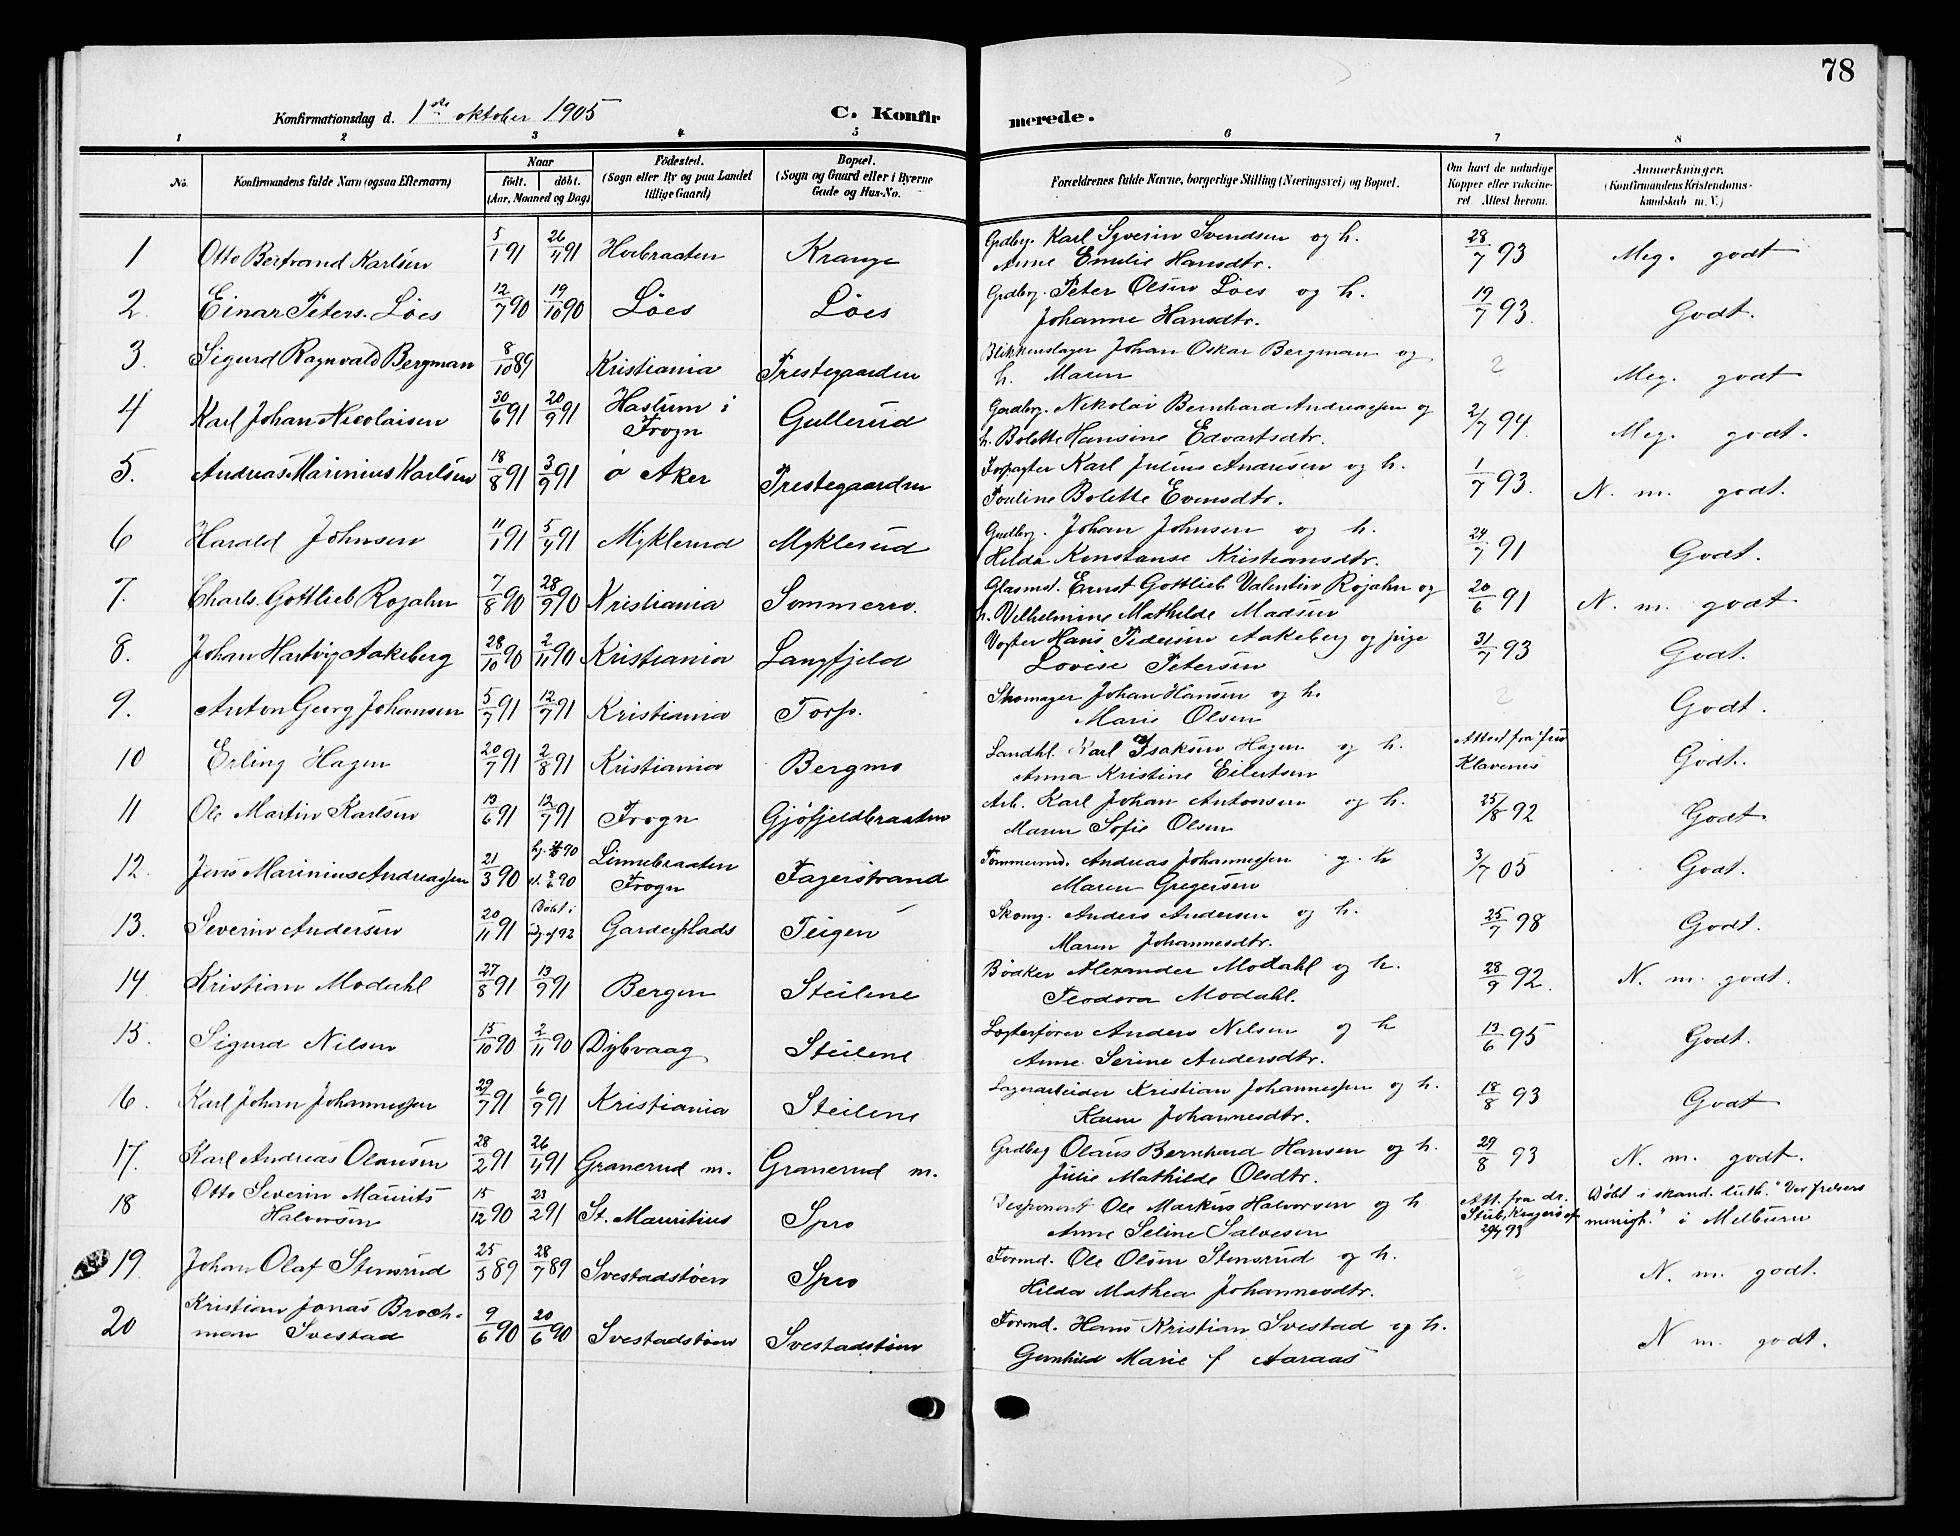 78
Konfirmationsdag d. 1ste oktober 1905 C. Konfirmerede.
1 2 3 4 5 6 7 8
No. Konfirmandens fulde Navn (ogsaa Efternavn) Naar født. døbt. (Aar, Maaned og Dag) Fødested. (Sogn eller By og paa Landet tillige Gaard) Bopæl. (Sogn og Gaard eller i Byerne Gade og Hus-No. Forældrenes fulde Navne, borgerlige Stilling (Næringsvei) og Bopæl. Om havt de naturlige Kopper eller vakcineret. Attest herom. Anmærkninger. (Konfirmandens Kristendomskundskab m. V.)
1 Otto Bertrand Karlsen 5/1 91 26/4 91 Hvebraaten Krange Grdbrg. Karl Syverin Svendsen og h. Anne Emilie Hansdtr. 28/7 93 Meg. godt
2. Einar Peters. Löes 12/7 90 19/10 90 Löes Löes Grdbrg. Peter Olsen Löes og h. Johanne Hansdtr. 19/7 93. Godt.
3. Sigurd Ragnvald Bergman 8/10 89 Kristiania Prestegaarden Blikkenslager Johan Oskar Bergman og h. Maren ? Meg. godt
4 Karl Johan Nicolaisen 30/6 91 20/9 91 Haslum i Frogn Gullerud Gardbrg. Nikolai Bernhard Andreassen og h. Bolette Hansine Edvartsdtr. 2/7 94. Meg. godt.
5. Andreas Marinius Karlsen 18/8 91 3/9 91 ø Aker Prestegaarden Forpagter Karl Julius Andresen og h. Pauline Bolette Evensdtr. 1/7 93. N. m. godt.
6 Harald Johnsen 11/1 91 5/4 91 Myklerud Myklerud Grdbrg. Johan Johnsen og h. Hilda Konstanse Kristiansdtr. 24/7 91 Godt.
7. Charls. Gottlieb Rojahn 7/8 90 28/9 90 Kristiania Sommerro. Glasmst. Ernst Gottlieb Valentin Rojahn og h. Vilhelmine Mathilde Madsen 20/6 91 N. m. godt
8. Johan Hartvig Aakeberg 28/10 90 2/11 90 Kristiania Langfjeld Vogter Hans Pedersen Aakeberg og pige Lovise Petersen 31/7 93 Godt.
9. Anton Georg Johansen 5/7 91 12/7 91 Kristiania Torp. Skomager Johan Hansen og h. Marie Olsen ? Godt.
10 Erling Hagen 20/7 91 2/8 91 Kristiania Bergmo Landhl. Karl Isaksen Hagen og h. Anna Kristine Eilertsen Attest fra frue Klavenes Godt.
11 Ole Martin Karlsen 13/6 91 12/7 91 Frogn Gjöfjeldbraaten Arb. Karl Johan Antonsen og h. Maren Sofie Olsen 25/8 92 Godt
12. Jens Marinius Andreassen 21/3 90 8/6 90 Linnebraaten Frogn Fagerstrand Tømmermd. Andreas Johannessen og h Maren Gregersen 3/7 05 Godt.
13. Severin Andersen 20/11 91 Döbt i 92 Garderplads Teigen Skomg. Anders Andersen og h. Maren Johannesdtr. 25/7 98 Godt.
14 Kristian Modahl 27/8 91 13/9 91 Bergen Steilene Bödker Alexander Modahl og h. Teodora Modahl. 28/9 92. N. m. godt.
15. Sigurd Nilsen 15/10 90 2/11 90 Dybvaag Steilene Logterfører Anders Nilsen og h Anne Serine Andersdtr. 13/6 95 Godt.
16. Karl Johan Johannessen 29/7 91 6/9 91 Kristiania Steilene Lagerarbeider Kristian Johannessen og h. Karen Johannesdtr. 18/8 93 Godt
17. Karl Andreas Olausen 28/2 91 26/4 91 Granerud m. Granerud m. Grdbrg Olaus Bernhard Hansen og h. Julie Mathilde Olsdtr. 29/8 93 N. m. godt.
18 Otto Severin Maurits Halvorsen 15/12 90 23/2 91 St. Mauritius Spro Disponent Ole Markus Halvorsen og h. Anne Seline Salvesen Att. fra dr. Stub, Kragerö 93 Döbt i skand. luth. "Vor frelsers menigh." i Melburn
19. Johan Olaf Stensrud 25/5 89 28/7 89 Svestadstöen Spro Formd. Ole Olsen Stensrud og h. Hilda Mathea Johannesdtr. ? N. m. godt.
20 Kristian Jonas Brochman Svestad 9/6 90 20/6 90 Svestadstöen Svestadstöen Formd. Hans Kristian Svestad og h. Gunhild Marie f Aaraas N m. godt.